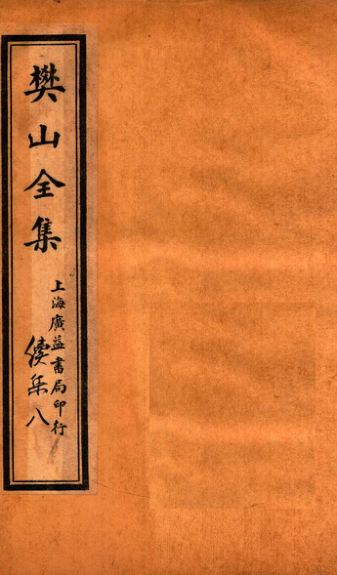 樊山全集
上海廣益書局印行
續集八